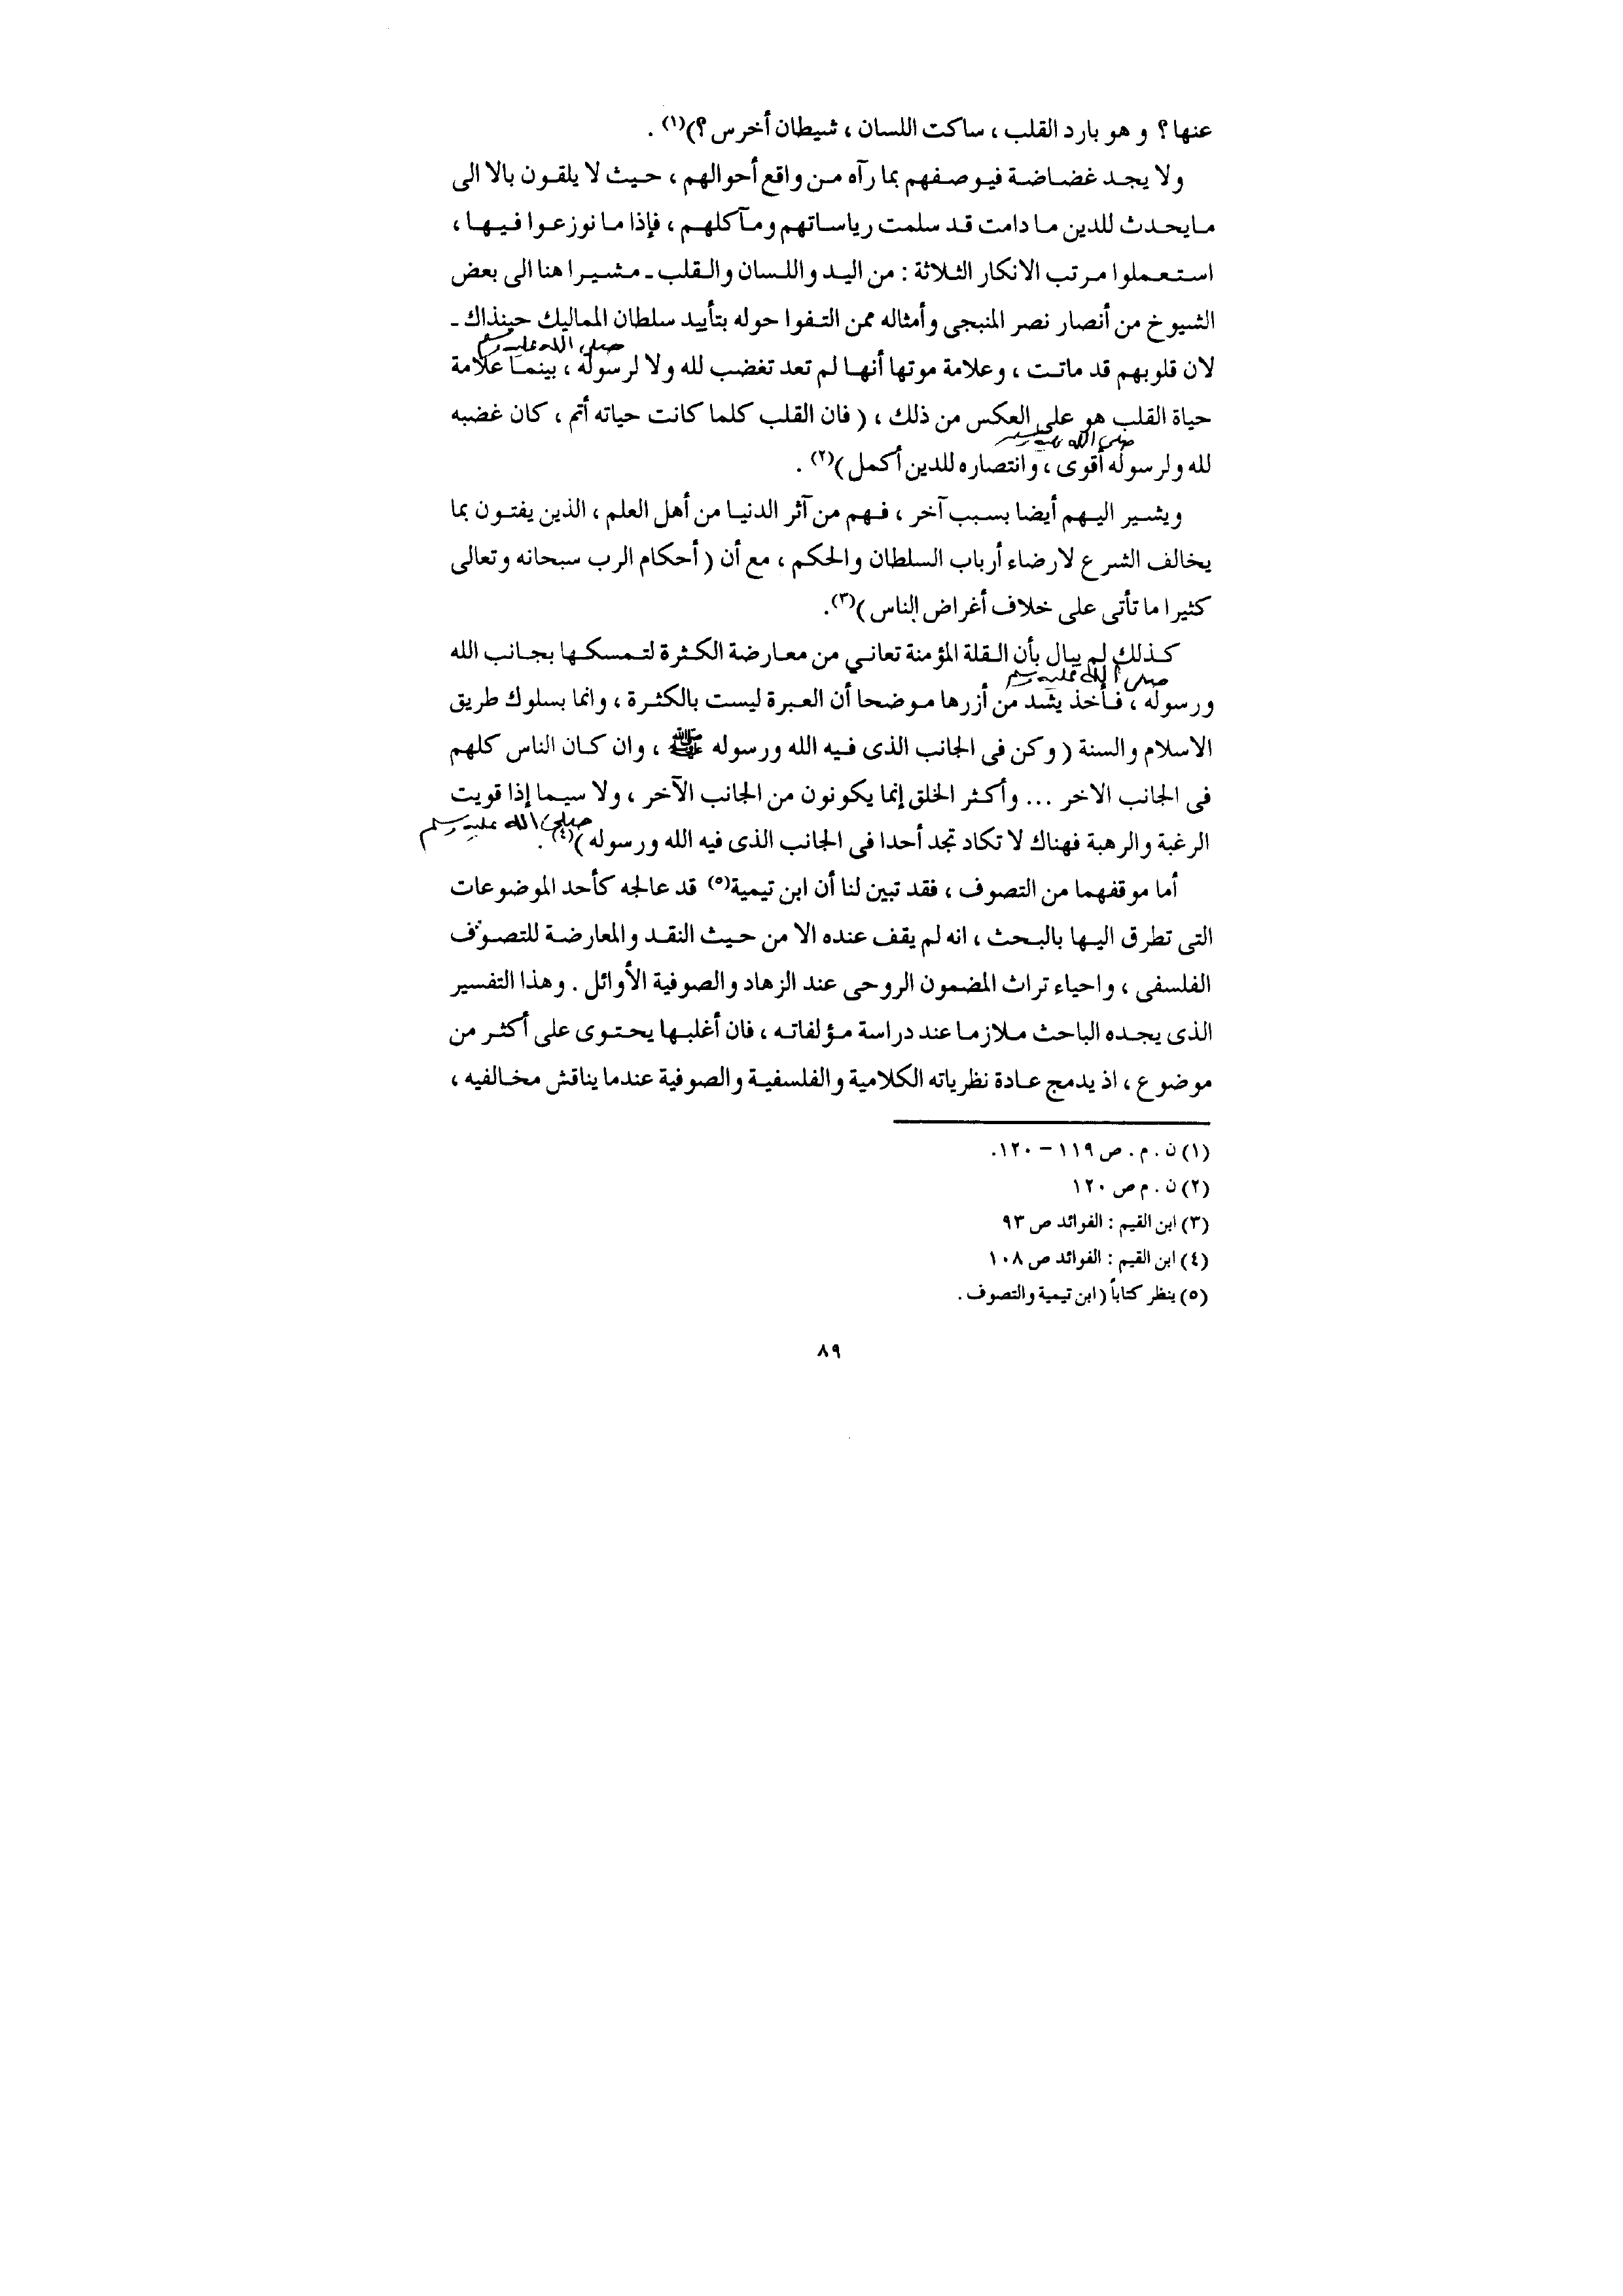 عنها؟ وهو بارد القلب ، ساكت اللسان ، شيطان أخرس ؟)(١) .
ولا يجد غضاضة فيوصفهم بما رآه من واقع أحوالهم ، حيث لا يلقون بالا الى
ما يحدث للدين ما دامت قد سلمت رياساتهم ومآكلهم ، فإذا ما نوزعوا فيها ،
استعملوا مرتب الانكار الثلاثة : من اليد واللسان والقلب ـ مشيرا هنا الى بعض
الشيوخ من أنصار نصر المنبجى وأمثاله ممن التفوا حوله بتأييد سلطان المماليك حينذاك ـ
صلى الله عليه وسلم
لان قلوبهم قد ماتت ، وعلامة موتها أنها لم تعد تغضب لله ولا لرسوله ، بينما علامة
حياة القلب هو على العكس من ذلك ، ( فان القلب كلما كانت حياته أتم ، كان غضبه
صلى الله عليه وسلم
لله ولرسوله أقوى ، وانتصاره للدين أكمل )(٢) .
ويشير اليهم أيضا بسبب آخر ، فهم من آثر الدنيا من أهل العلم ، الذين يفتون بما
يخالف الشرع لارضاء أرباب السلطان والحكم ، مع أن ( أحكام الرب سبحانه وتعالى
كثيرا ما تأتى على خلاف أغراض الناس )(٣).
كذلك لم يبال بأن القلة المؤمنة تعاني من معارضة الكثرة لتمسكها بجانب الله
صلى الله عليه وسلم
ورسوله ، فأخذ يشد من أزرها موضحا أن العبرة ليست بالكثرة ، وانما بسلوك طريق
الاسلام والسنة ( وكن فى الجانب الذى فيه الله ورسوله ﷺ ، وان كان الناس كلهم
فى الجانب الاخر ... وأكثر الخلق إنما يكونون من الجانب الآخر ، ولا سيما إذا قويت
صلى الله عليه وسلم
الرغبة والرهبة فهناك لا تكاد تجد أحدا فى الجانب الذى فيه الله ورسوله )(٤) .
أما موقفهما من التصوف ، فقد تبين لنا أن ابن تيمية(٥) قد عالجه كأحد الموضوعات
التى تطرق اليها بالبحث ، انه لم يقف عنده الا من حيث النقد والمعارضة للتصوف
الفلسفى ، واحياء تراث المضمون الروحى عند الزهاد والصوفية الأوائل . وهذا التفسير
الذى يجده الباحث ملازما عند دراسة مؤلفاته ، فان أغلبها يحتوى على أكثر من
موضوع ، اذ يدمج عادة نظرياته الكلامية والفلسفية والصوفية عندما يناقش مخالفيه ،
(١) ن . م . ص ١١٩ – ١٢٠.
(٢) ن . م ص ١٢٠
(٣) ابن القيم : الفوائد ص ٩٣
(٤) ابن القيم : الفوائد ص ١٠٨
(٥) ينظر كتاباً ( ابن تيمية والتصوف .
٨٩